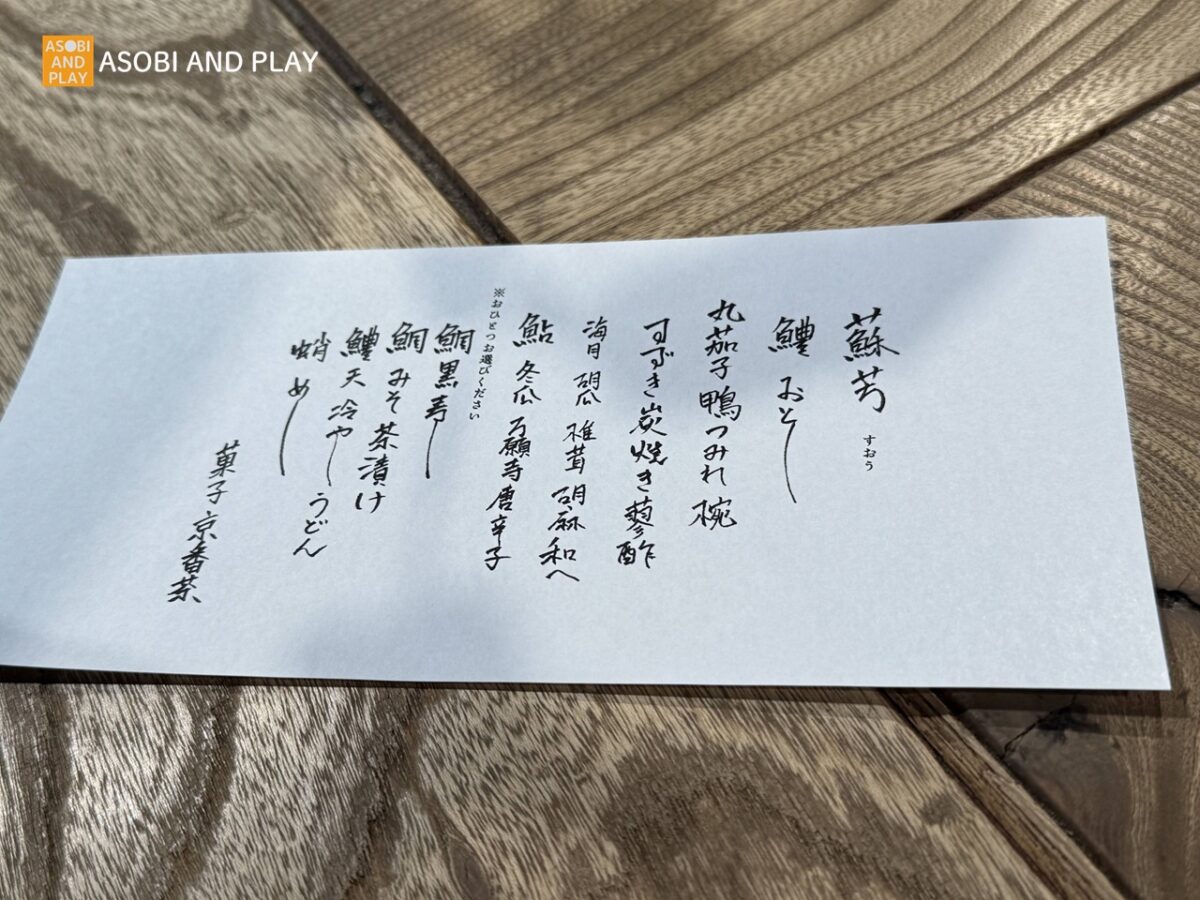 ASOBI
AND
PLAY
ASOBI AND PLAY
蘇芳
すおう
鱧 おとし
丸茄子鴨つみれ椀
すずき炭焼き蓼酢
海月 胡瓜 椎茸 胡麻和へ
鮎 冬瓜 万願寺唐辛子
※おひとつお選びください
鯛黒寿し
鯛みそ茶漬け
鱧天冷やしうどん
蛸めし
菓子 京番茶